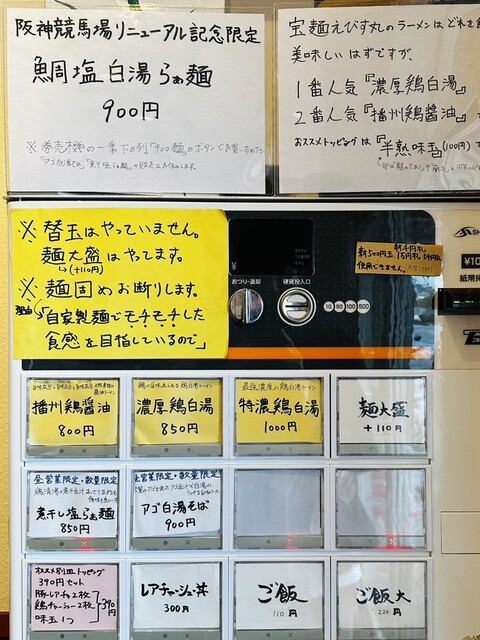 阪神競馬場リニューアル記念限定
鯛塩白湯らぁ麺
900円
宝麺えびす丸のラーメンはどれを
美味しいはずですが、
1番人気『濃厚鶏白湯』
2番人気『播州鶏醤油』で
おススメトッピングは『半熟味玉』(100円)で
※替玉はやっていません。
麺大盛はやってます。
(+110円)
※麺固めお断りします。
理由「自家製麺でモチモチした
食感を目指しているので」
新千円札
新500円玉、1万円札、5千円札
使用できません。
おつり・返却
硬貨投入口
10 50 100 500
播州鶏醤油
800円
濃厚鶏白湯
850円
最強濃度の鶏白湯ラーメン
特濃鶏白湯
1000円
麺大盛
+110円
昼営業限定・数量限定
煮干し塩らぁ麺
850円
昼営業限定・数量限定
アゴ白湯そば
900円
オススメ別皿トッピング
390円セット
豚レアチャ2枚
鶏チャーシュー2枚
味玉1つ
390円
レアチャーシュー丼
300円
ご飯
110円
ご飯大
220円